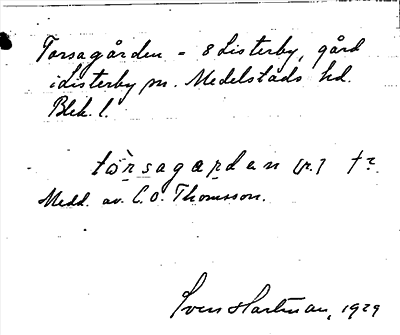 Torsagården = 8 Listerby, gård
i Listerby sn. Medelstads hd.
Blek. l.
tòrsagarden [r.] †?
Medd. av C. O. Thomsson.
Sven Hartman, 1929